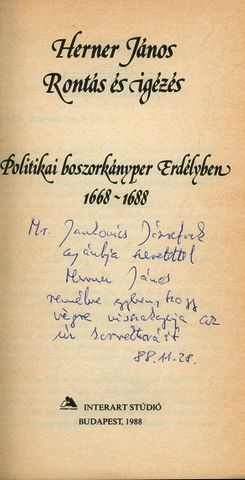 Herner János
Rontás és igézés
Politikai boszorkányper Erdélyben
1668~1688
Mr. Jankovics Józsefnek
ajánlja szeretettel
Herner János
remélve egyben, hogy
végre visszakapja az
88.11.28.
INTERART STÚDIÓ
BUDAPEST, 1988